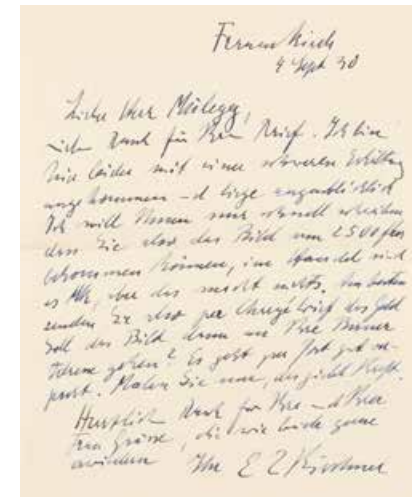 Frauenkirch
4 Sept 30
Lieber Herr
vielen Dank für Ihren Brief. Ich bin
hier leider mit einer schweren Erkältung
angekommen und liege augenblicklich
Ich will Ihnen nur schnell schreiben
dass Sie also das Bild um 2500 frs
bekommen können, im Handel sind
es Mk, aber das macht nichts. Am besten
senden Sie also per Chargébrief das Geld
Soll das Bild dann an Ihre
Adresse gehen? Es geht per Post gut
Malen Sie nur, das giebt Kraft.
Herzlich Dank für Ihre und Ihrer
Frau Grüsse, die wir beide gerne
erwidern Ihr E L Kirchner